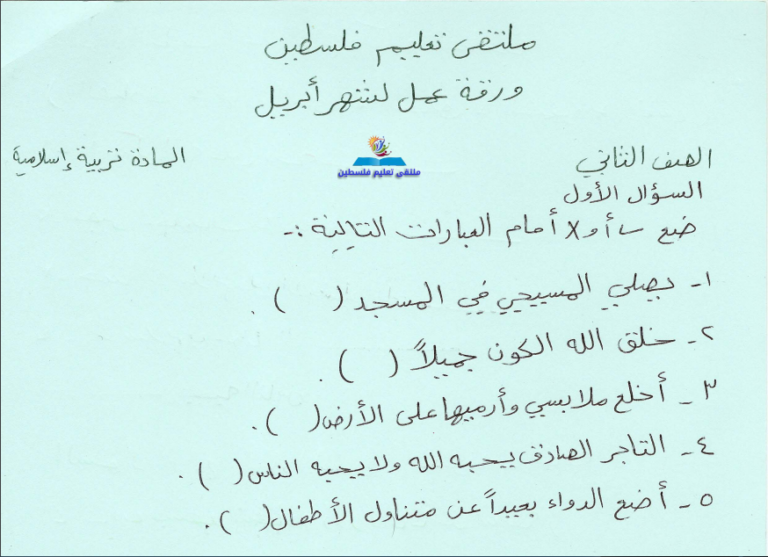 ملتقى تعليم فلسطين
ورقة عمل لشهر أبريل
الصف الثاني
المادة تربية إسلامية
ملتقى تعليم فلسطين
السؤال الأول
ضع ✓ أو X أمام العبارات التالية :-
١- يصلي المسيحي في المسجد ( ) .
٢- خلق الله الكون جميلاً ( ) .
٣- أخلع ملابسي وأرميها على الأرض ( ) .
٤- التاجر الصادق يحبه الله ولا يحبه الناس ( ) .
٥- أضع الدواء بعيداً عن متناول الأطفال ( ) .